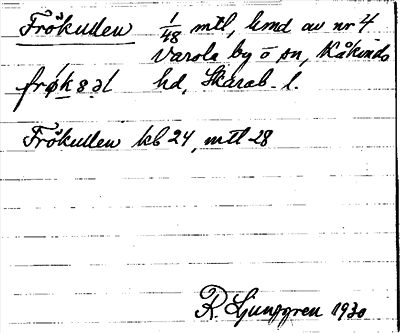 Frökullen 1/48 mtl, hmd av nr 4
Varola by o sn, Kåkinds
hd, Skarab. l.
Frökullen kb 24, mtl 28
R. Ljunggren 1930